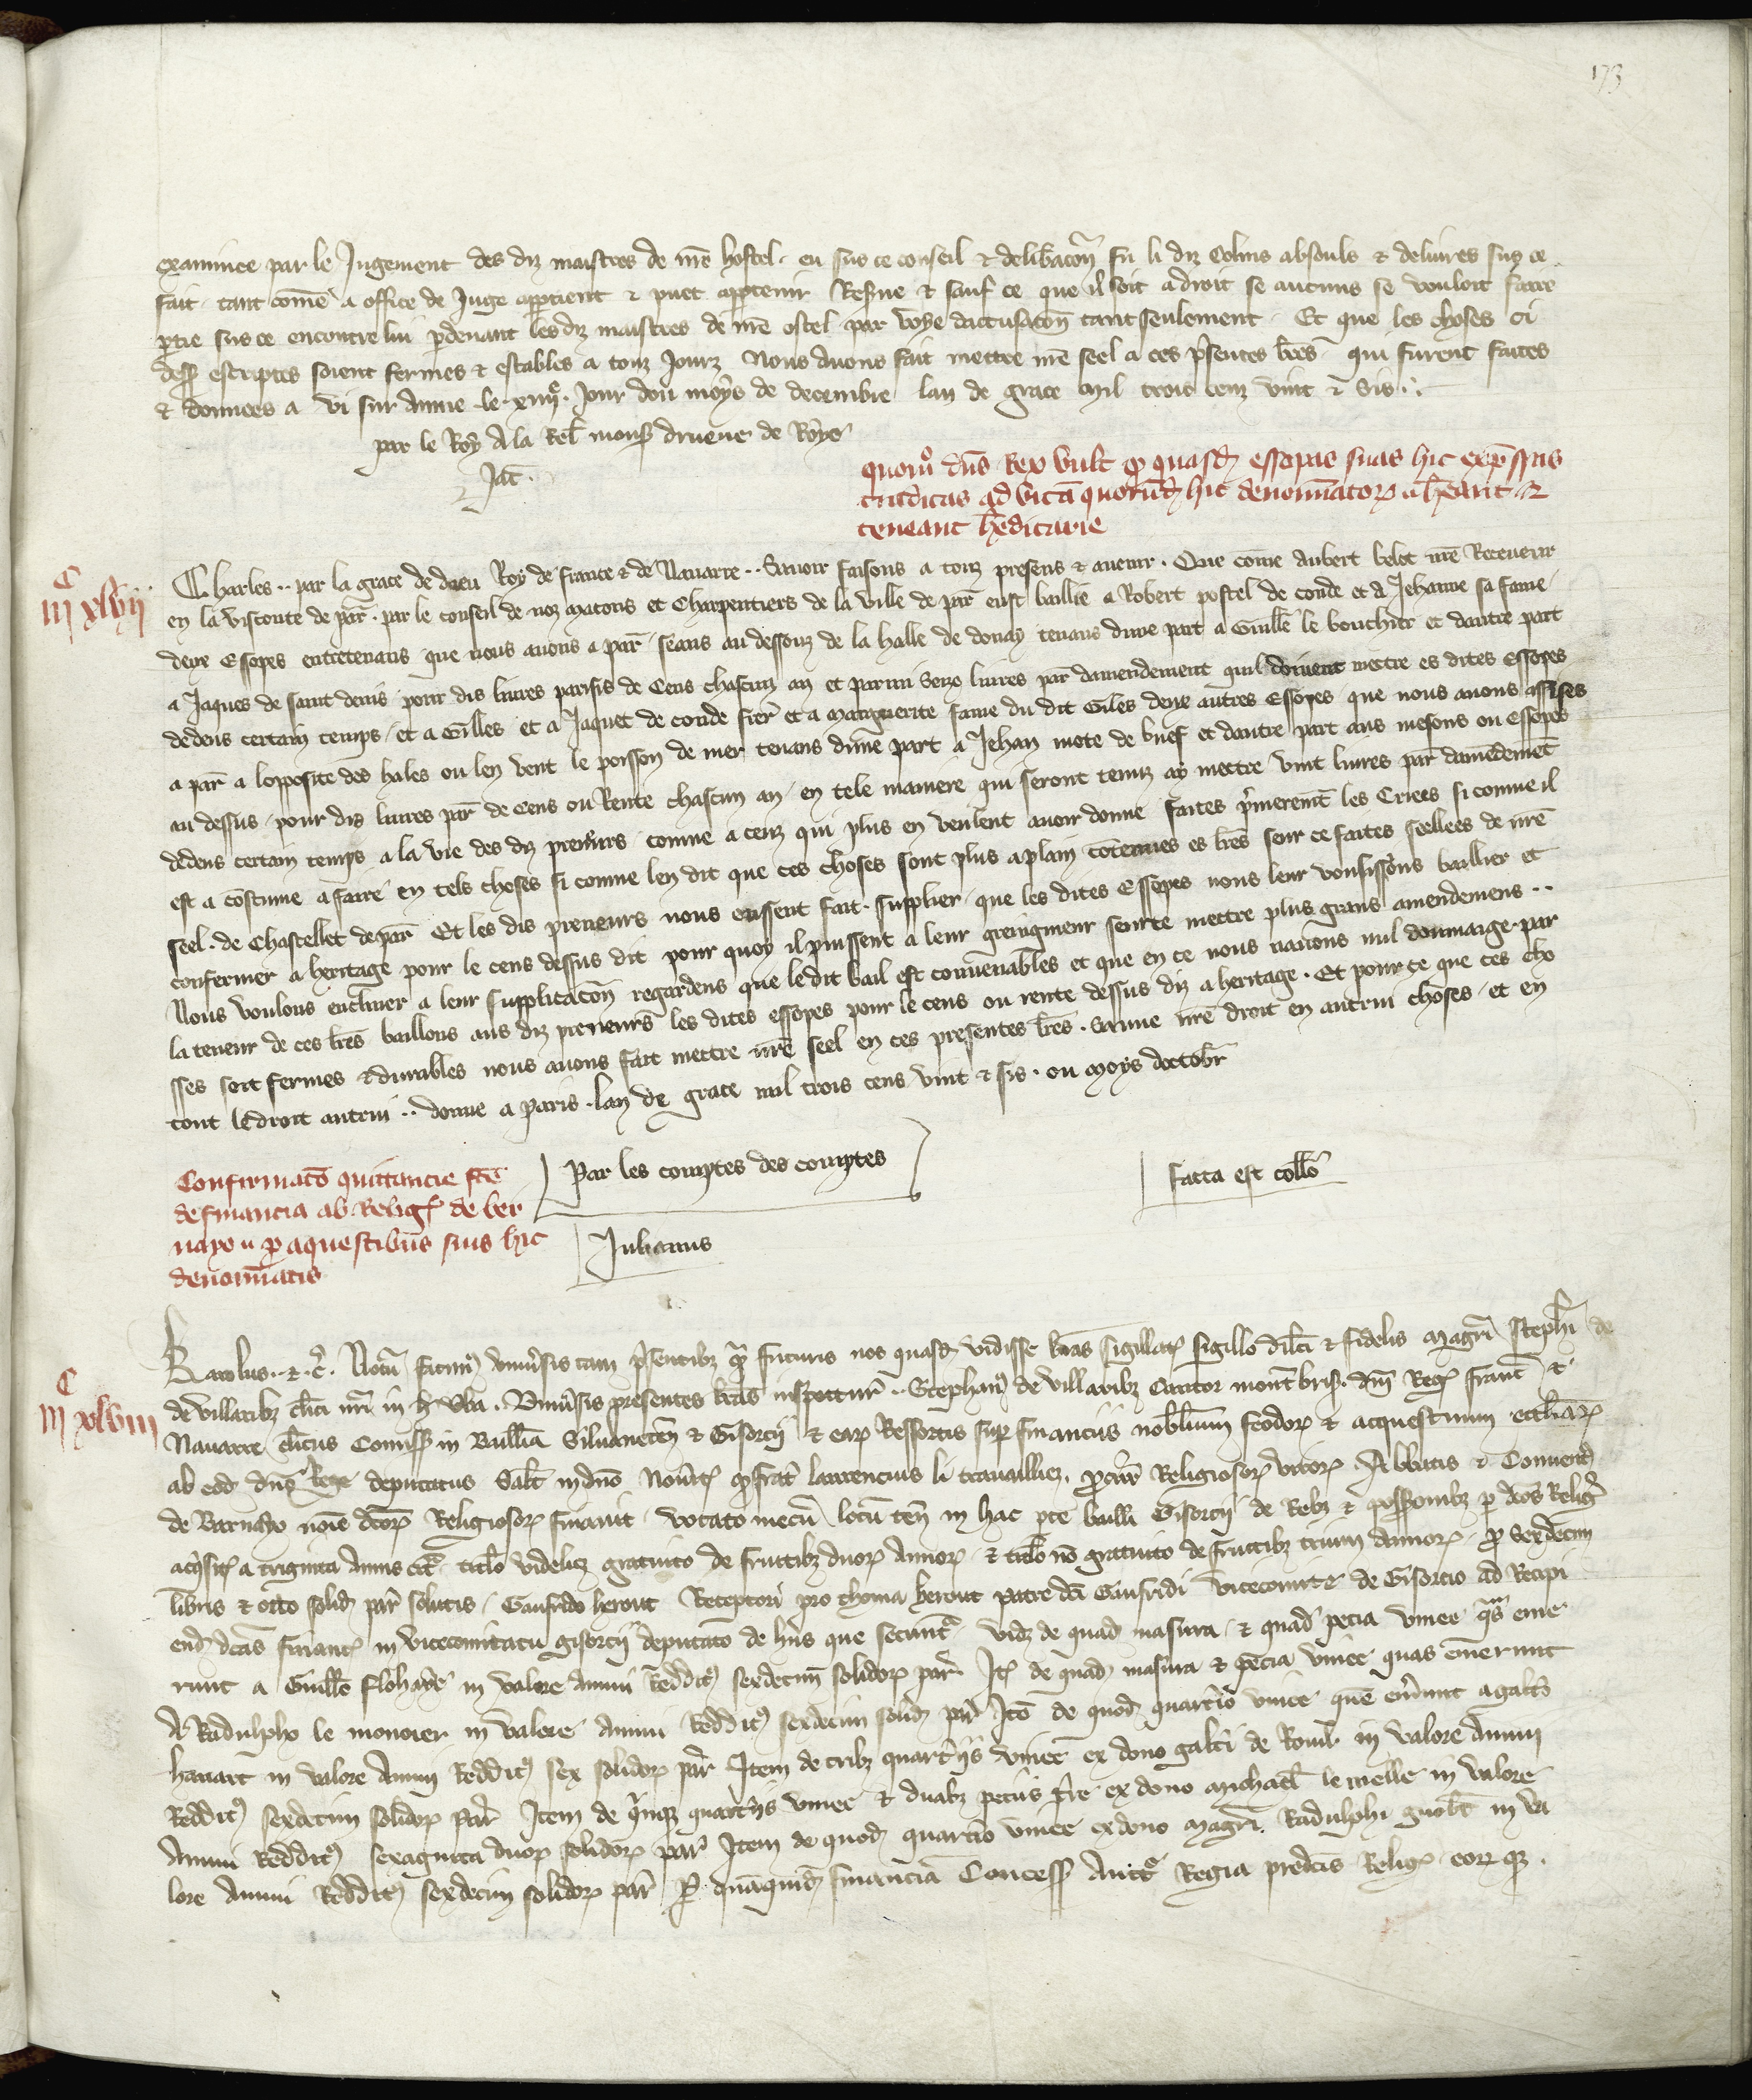 173
examinee par le Jugement des diz maistres de nr̃e hostel. eu sus ce conseil & delib̃acõn fu li diz Colins absouls & deliures sus ce
fait. tant com̃e a office de Juge apptient & puet apptenir Resue & sauf ce que il soit a droit se aucuns se vouloit faire
ptie sus ce encontre lui pdeuant les diz maistres de nr̃e ostel par voye daccusacõn tant seulement. Et que les choses ci
dess escriptes soient fermes & estables a touz Jourz Nous auons fait mettre nr̃e seel a ces p̃sentes lr̃es qui furent faites
& donnees a vi sur Ainne le xiiij. Jour dou moys de decembre lan de grace mil trois cenz vint & Sis.
par le Roy A la Rel̃ mons drueue de Roye
Jac̃.
quom̊ dñs Rex vult q̃ quasd essopas suas hic exp̃ssas
traditas ad vitã quorũd hic denominatoꝝ ab̃eant &
teneant h̃editarie
C
iij xlvij
Charles.. par la grace de dieu Roy de france & de Nauarre.. Sauoir faisons a touz presens & auenir. Que com̃e Aubert belot nr̃e Receueur
en la visconte de par̃. par le conseil de noz Macons et Charpentiers de la ville de par̃ eust baillie a Robert postel de conde et a Jehanne sa fame
deux Essopes entretenans que nous auons a par̃ seans au dessouz de la halle de douay tenans dune part a Guill̃e le bouchier et dautre part
a Jaques de saint denis pour dis liures parisis de Cens chascun an et parmi seze liures par̃ damendement quil doiuent mettre es dites Essopes
dedens certain temps et a Gilles et a Jaquet de conde frer̃ et a marguerite fame du dit Giles deux autres Essopes que nous auons assises
a par̃ a lopposite des hales ou len vent le poisson de mer tenans dune part a Jehan mote de buef et dautre part aus mesons ou Essopes
au dessus pour dis liures par̃ de Cens ou Rente chascun an en tele maniere qui seront tenuz a y mettre vint liures par̃ damẽdemẽt
dedens certain temps a la vie des diz preneurs comme a ceuz qui plus en veulent auoir donne faites p̃merem̃t les Criees si comme il
est a costume a faire en tels choses si comme len dit que ces choses sont plus a plain cõtenues es lr̃es seur ce faites seellees de nr̃e
seel. de Chastellet de par̃ Et les dis preneurs nous eussent fait. supplier que les dites Essopes nous leur vousissons baillier et
confermer a heritage pour le cens dessus dit pour quoy il puissent a leur greingneur seurte mettre plus grans amendemens..
Nous voulons encliner a leur supplicacõn regardens que ledit bail est conuenables et que en ce nous nauons nul doumaige. par
la teneur de ces lr̃es baillons aus diz preneurs les dites essopes pour le cens ou rente dessus diz a heritage. Et pour ce que ces cho
sses soit fermes & durables nous auons fait mettre nr̃e seel en ces presentes lr̃es. Sauue nr̃e droit en autrui choses et en
tout le droit autrui.. donne a paris. lan de grace mil trois cens vint & sis. ou moys doctobr̃
Par les comptes des comptes
facta est coll̃o
Julianus
Confirmatõ quittancie fc̃e
de financia ab Relig̃ de ber
nayo p aquestibus suis hic
denominatis
C
iij xlviij
Karolus..&.c̃. Notũ facim9 vniu̾sis tam p̃sentibz q̃ futuris nos quasd vidisse lr̃as sigillat̾ sigillo dil̃ci & fidelis Magr̃i Steph̃i de
de villaribz cl̃ici nr̃i in h̾ v̾ba. Vniu̾sis presentes lr̃as inspectur̃.. Stephan9 de villaribz Cantor mont̃bris. dñi Reg̾ franc̃ &
Nauarre cl̃icus Comiss̾ in Bailliã Siluanect̃n & Gisorcij & eaꝝ Ressortis sup̾ financiis nobilium feodoꝝ & acquestuum eccl̃iaꝝ
ab eod dno̾ Rege deputatus Salt̃ in dño Nou̾it̾ q frat̃ laurencius li trauailliez. procur̃ Religiosoꝝ viroꝝ Abbatis & Conuent9
de Bernayo noĩe dc̃oꝝ Religiosoꝝ finauit vocato mecũ locũ teñ in hac pte bailli Gisorcij de Rebz & possessionibz p dc̃os Relig̾
acq̃sit̾ a triginta Annis cit̃ titl̃o videlicz gratuito de fructibz duoꝝ Annoꝝ & titl̃o nõ gratuito de fructibz trium Annoꝝ pro sexdecim
libris & octo solid par̃ solutis Gaufrido herout Receptori pro thoma herout patre dc̃i Gaufridi vicecomite de Gisorcio ad Recipi
end dc̃as financ̾ in vicecomitatu gisorcij deputato de hijs que secunt̃ vidz de quad masura & quad pecia vinee q̃s eme
runt a Guill̃o flohayde in valore annui Reddit9 sexdecim solidoꝝ par̃. Jt̾ de quad masura & pecia vinee quas emerunt
A Radulpho le monoier in valore annui Reddit9 sexdecim solid par̃ Jtẽ de quod quart̾io vinee quẽ em̾unt a galt̾o
hauart in valore Annui Reddit9 sex solidoꝝ par̃ Jtem de tribz quart̾ijs vinee ex dono galt̾i de Rom̃ in valore Annui
Reddit9 sexdecim solidoꝝ par̃ Jtem de q̃inqz quart̾ijs vinee & duabz peciis t̾re ex dono Michael̃ le vielle in valore
Annui Reddit9 sexaginta duoꝝ solidoꝝ par̃ Jtem de quod quart̾io vinee ex dono Magr̃i Radulphi guob̃t in va
lore Annui Reddit9 sexdecim solidoꝝ par̃ P quãquid financiã Concess̾ Auct̃e Regia predc̃is Relig̾ eoꝝ qz.